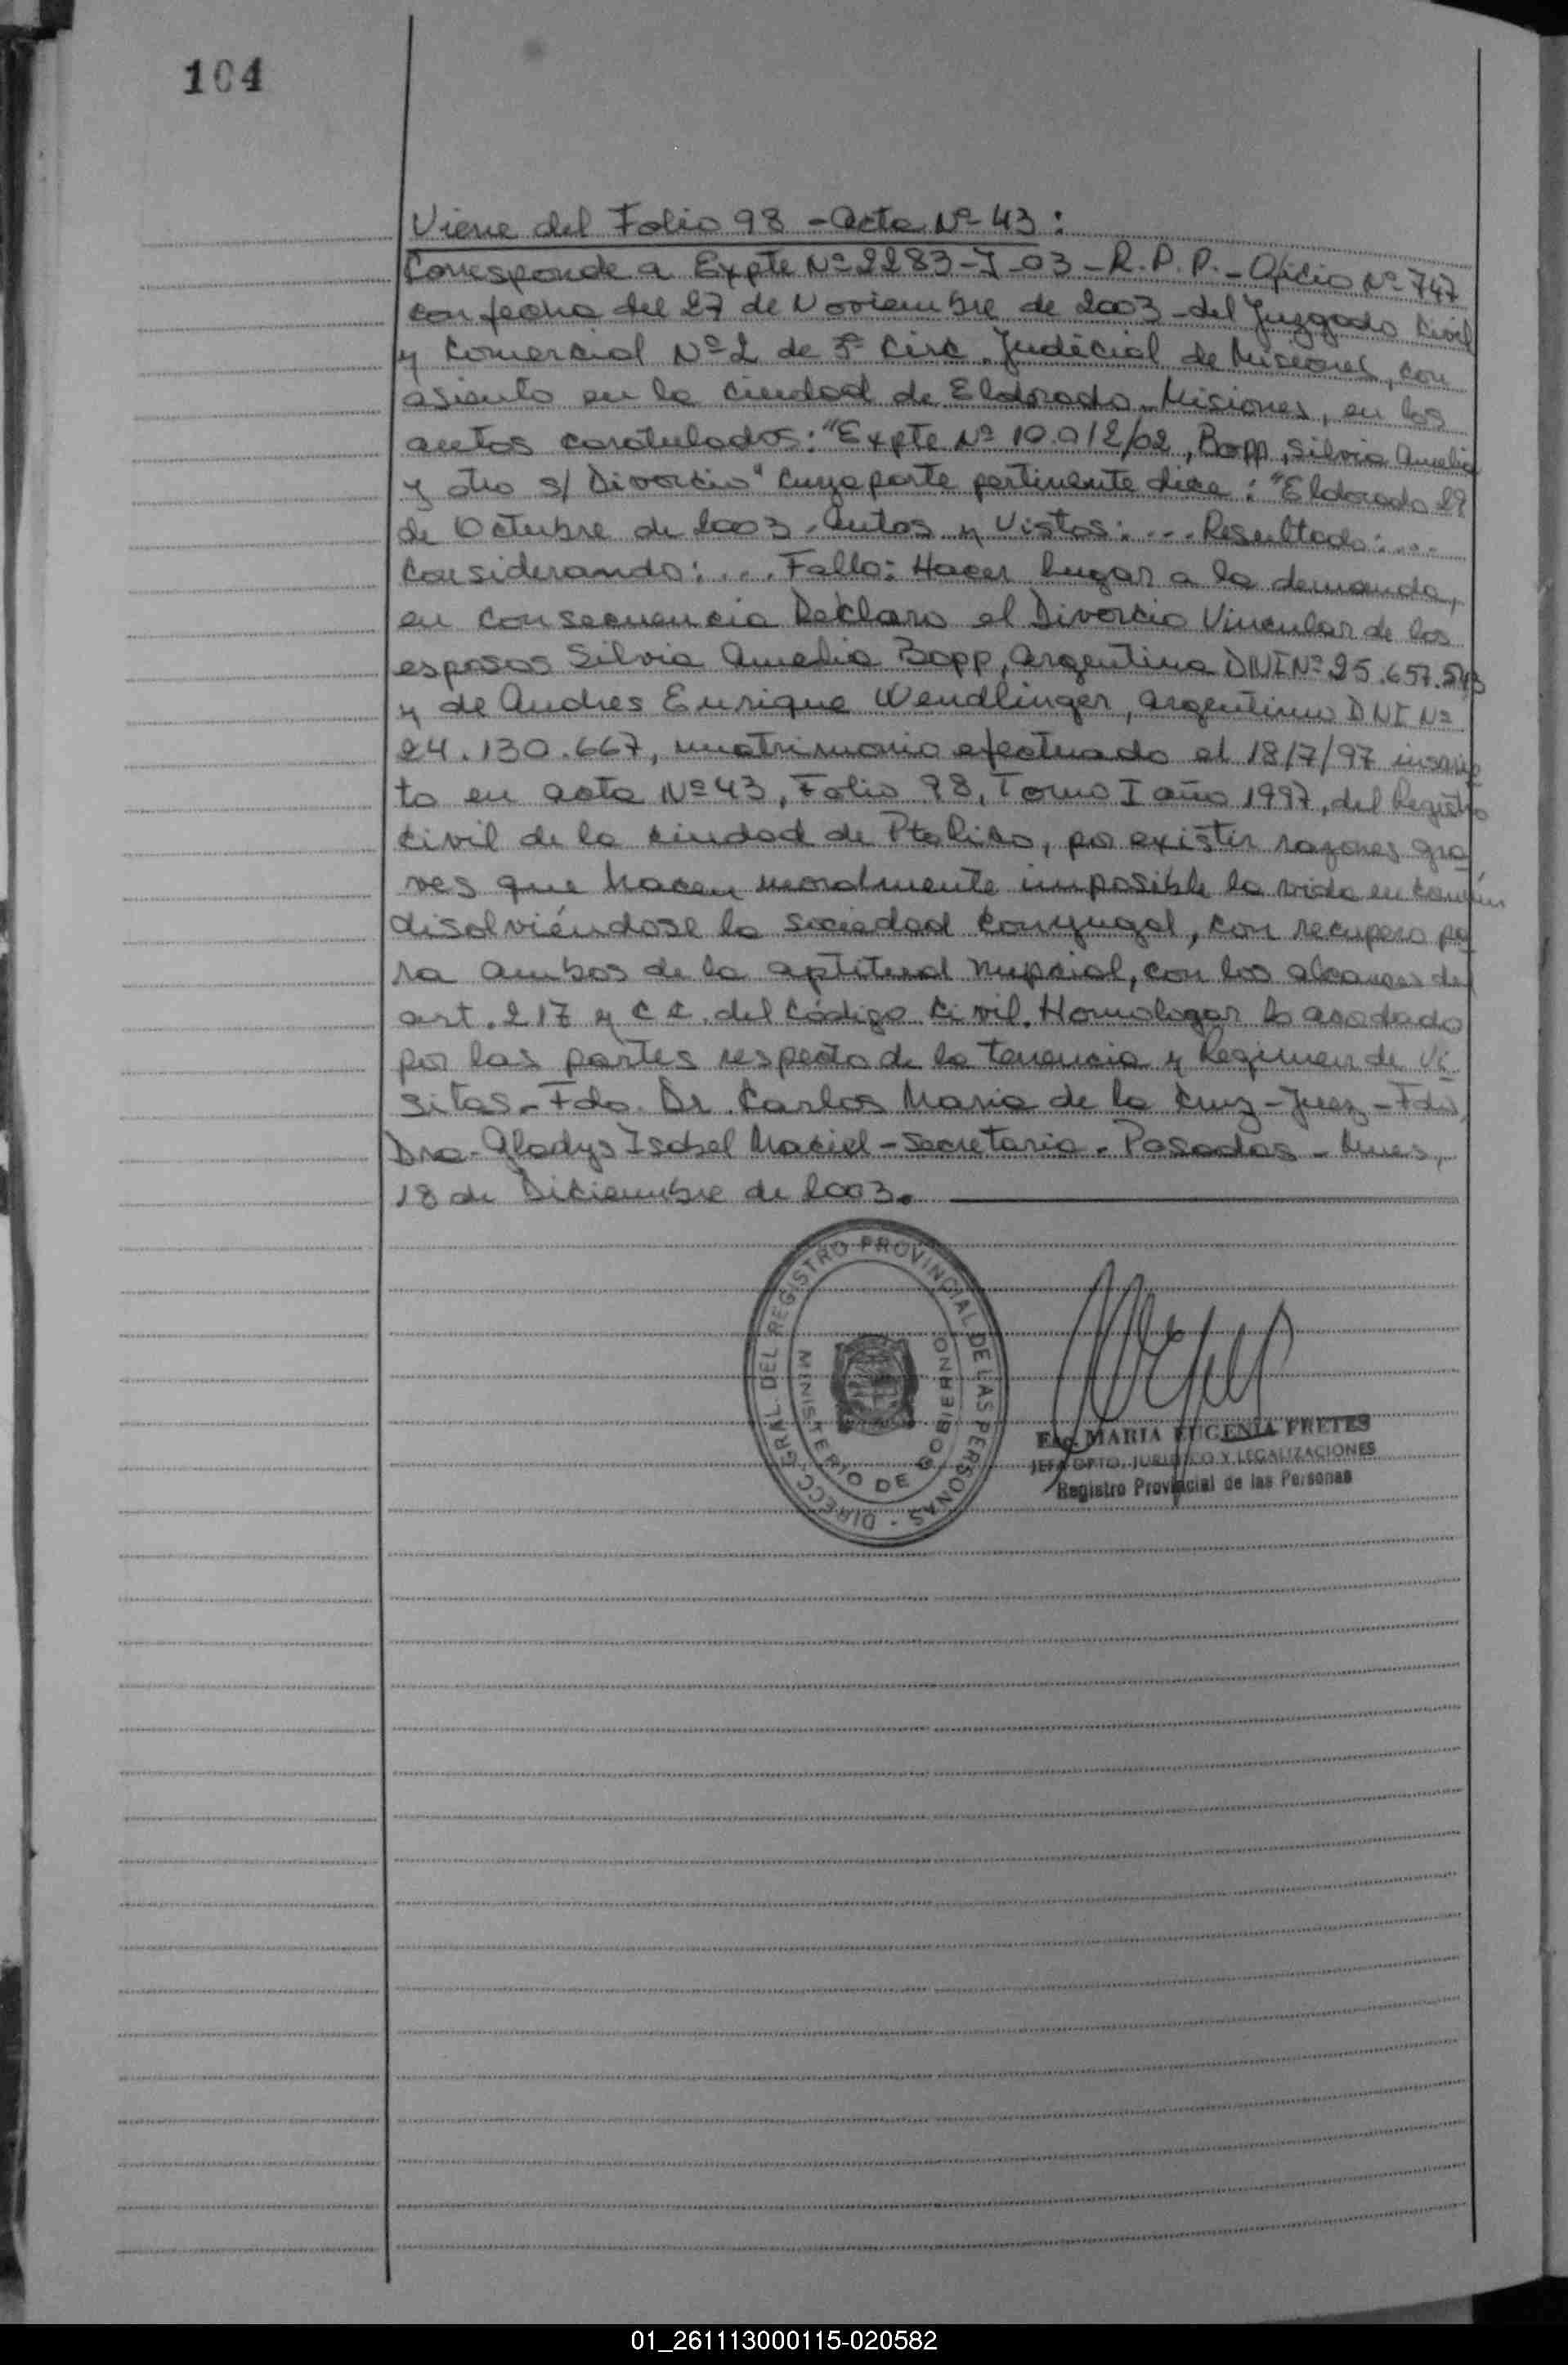 104
Viene del Folio 98 - Acta Nº 43 :
Corresponde a Expte Nº 2283-J-03 - R.P.P. - Oficio Nº 747
con fecha del 27 de Noviembre de 2003 - del Juzgado Civil
y Comercial Nº 2 de 3º Circ. Judicial de Misiones, con
asiento en la ciudad de Eldorado - Misiones, en los
autos caratulados: "Expte Nº 10.012/02, Bopp, Silvia Amelia
y otro s/ Divorcio" cuya parte pertinente dice: "Eldorado 29
de Octubre de 2003. Autos y Vistos: ... Resultado: ...
Considerando: .... Fallo: Hacer lugar a la demanda,
en consecuencia Declaro el Divorcio Vincular de los
esposos Silvia Amelia Bopp, argentina DNI Nº 25.657.543
y de Andres Enrique Wendlinger, argentino DNI Nº
24.130.667, matrimonio efectuado el 18/7/97 inscrip
to en acta Nº 43, Folio 98, Tomo I año 1997, del Registro
Civil de la ciudad de Pto Rico, por existir razones gra
ves que hacen moralmente imposible la vida en común
disolviéndose la sociedad conyugal, con recupero pa
ra ambos de la aptitud nupcial, con los alcances del
art. 217 y C.C. del Código Civil. Homologar lo acordado
por las partes respecto de la tenencia y Regimen de Vi
sitas. - Fdo. Dr. Carlos Maria de la Cruz - Juez - Fdo,
Dra. Gladys Isabel Maciel - Secretaria. Posadas - Mnes,
18 de Diciembre de 2003.
DIRECC. GRAL. DEL REGISTRO PROVINCIAL DE LAS PERSONAS -
MINISTERIO DE GOBIERNO
Esc. MARIA EUGENIA FRETES
JEFA DPTO. JURIDICO Y LEGALIZACIONES
Registro Provincial de las Personas
01_261113000115-020582